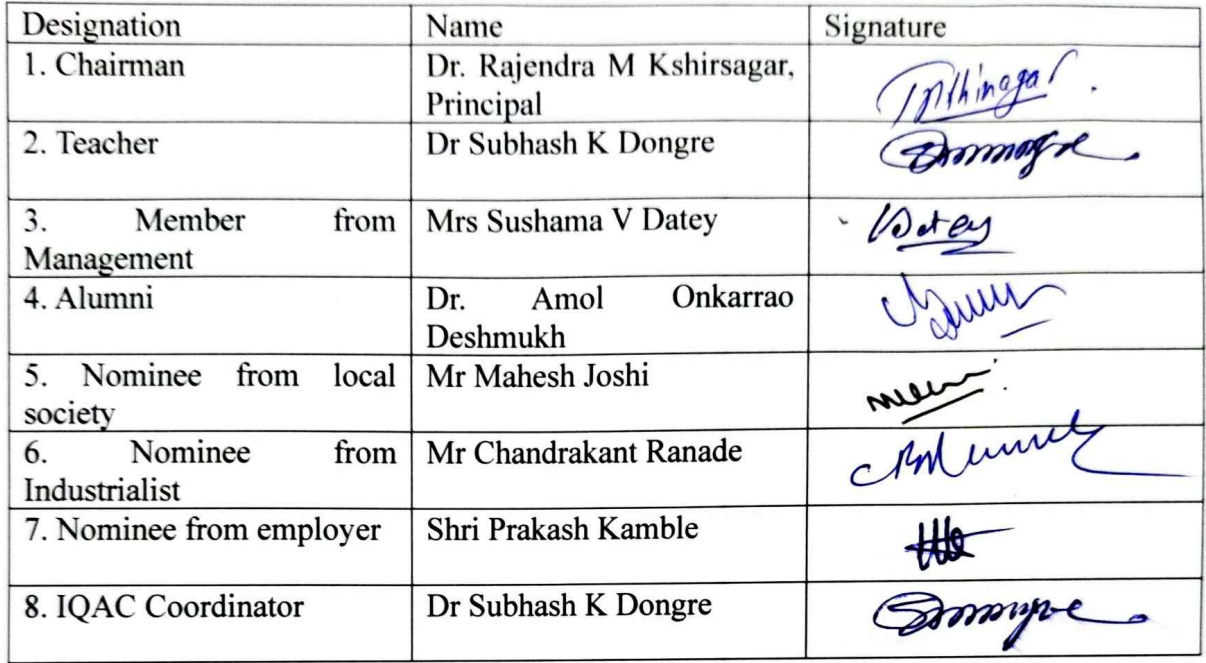 Designation Name Signature
1. Chairman Dr. Rajendra M Kshirsagar,
Principal
2. Teacher Dr Subhash K Dongre
3. Member from Mrs Sushama V Datey Datey
Management
4. Alumni Dr. Amol Onkarrao
Deshmukh
5. Nominee from local Mr Mahesh Joshi
society
6. Nominee from Mr Chandrakant Ranade
Industrialist
7. Nominee from employer Shri Prakash Kamble
8. IQAC Coordinator Dr Subhash K Dongre